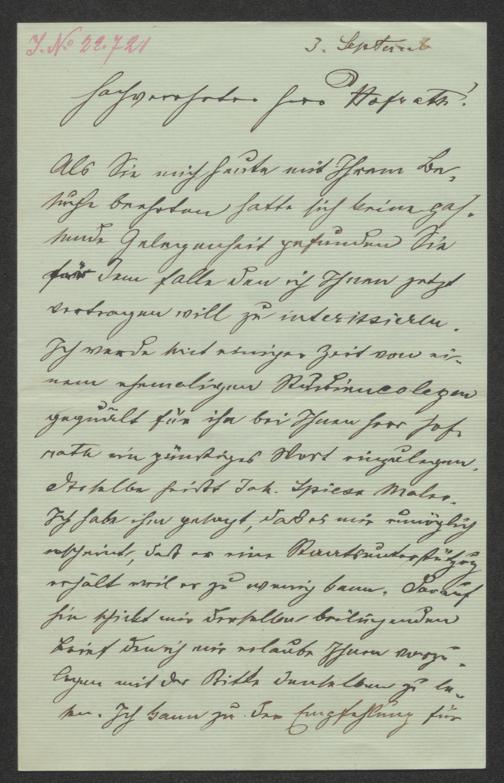 J. Nº 22.721
3. Septemb
Hochverehrter Herr Hofrath!
Als Sie mich heute mit Ihrem Be-
suche beehrten hatte sich keine pas-
sende Gelegenheit gefunden Sie
für dem Falle den ich Ihnen jetzt
vortragen will zu interissieren.
Ich werde seit einiger Zeit von ei-
nem ehemaligen Studiencolegen
gequält für ihn bei Ihnen Herr Hof-
rath ein günstiges Wort einzulegen.
Derselbe heißt Joh. Spiess Maler.
Ich habe ihm gesagt, daß es mir unmöglich
erscheint, daß er eine Staatsunterstützung
erhält weil er zu wenig kann. Darauf
hin schickt mir derselbe beiligenden
Brief den ich mir erlaube Ihnen vorzu-
legen mit der Bitte denselben zu le-
sen. Ich kann zu der Empfehlung für